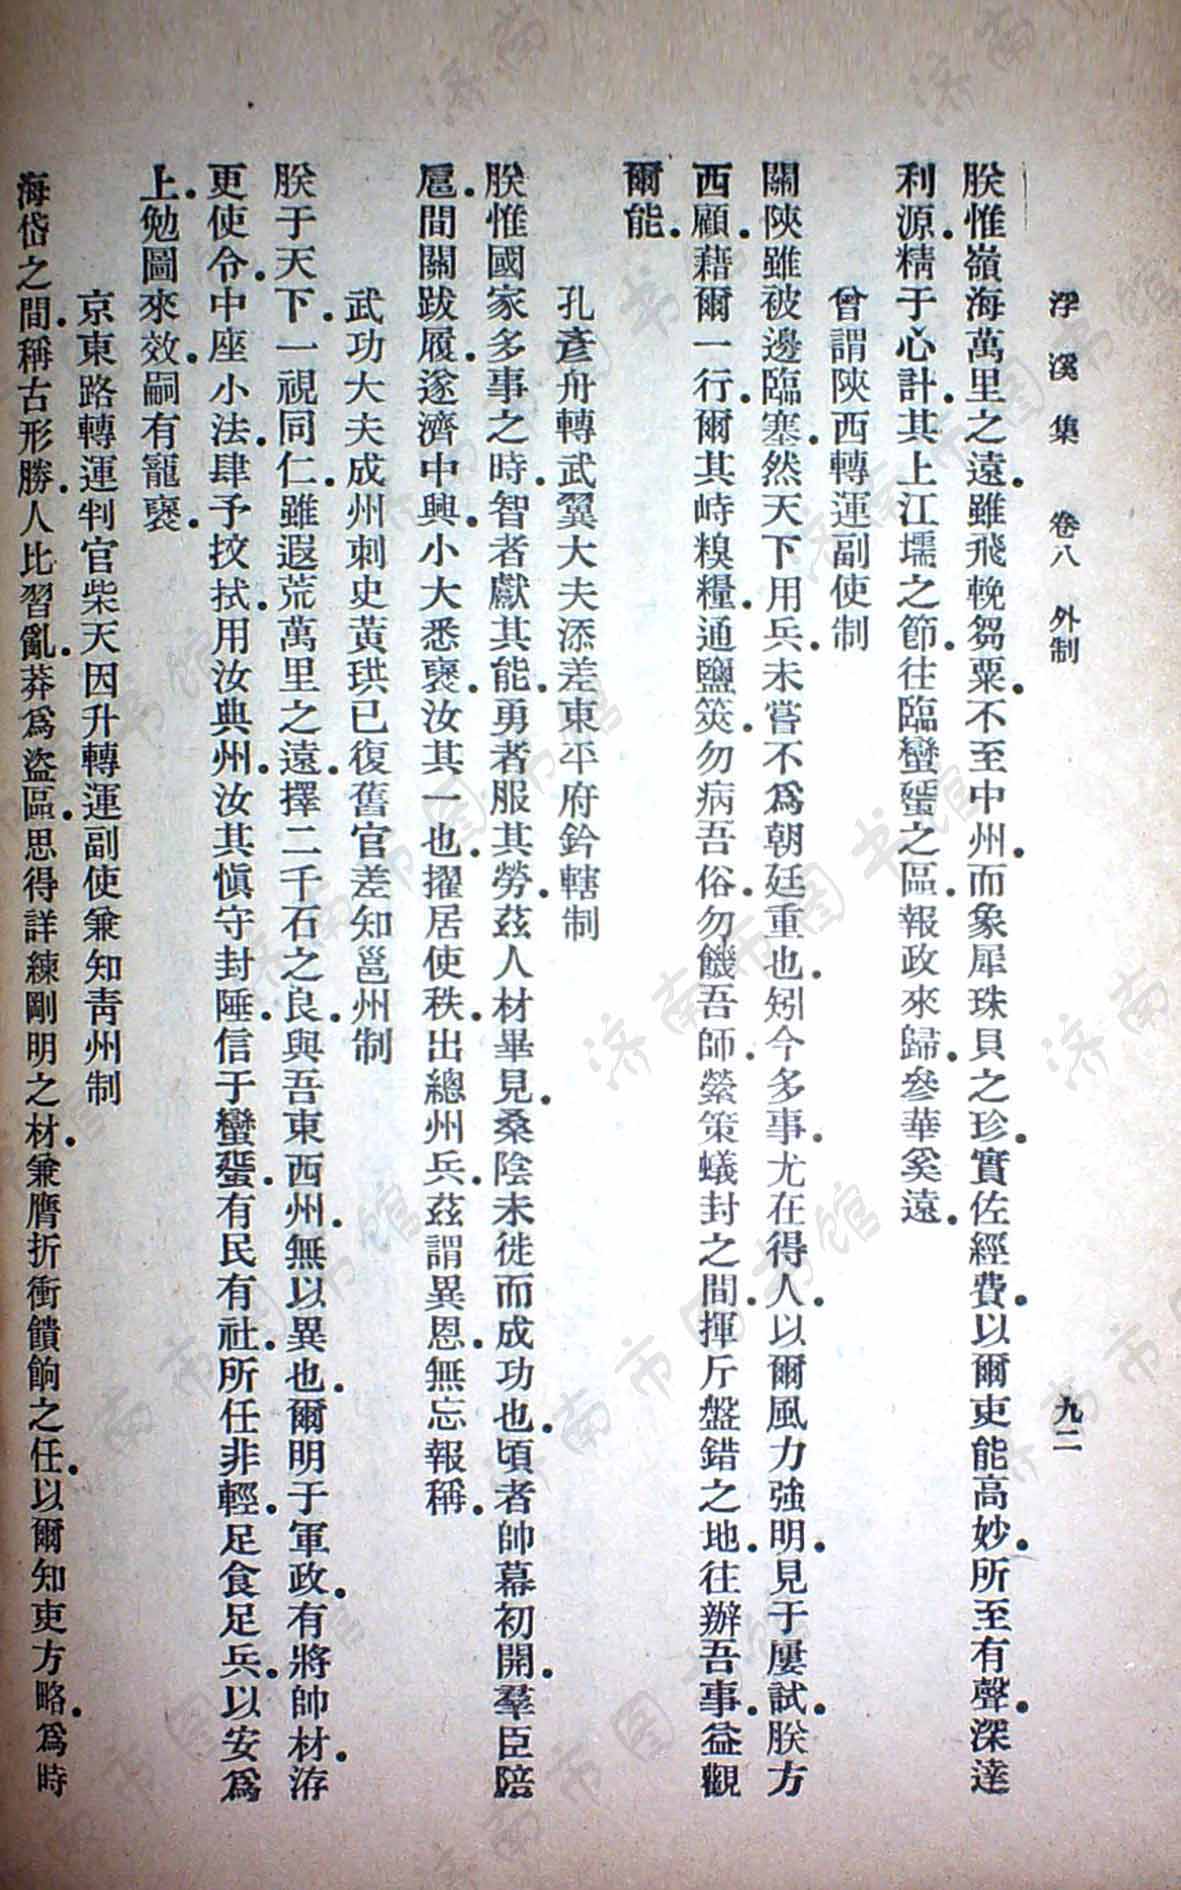 浮溪集 卷八 外制 九二
朕惟嶺海萬里之遠.雖飛輓芻粟.不至中州.而象犀珠貝之珍.實佐經費.以爾吏能高妙.所至有聲.深達
利源.精于心計.其上江壖之節.往臨蠻蜑之區.報政來歸.參華奚遠.
曾謂陝西轉運副使制
關陝雖被邊臨塞.然天下用兵.未嘗不爲朝廷重也.矧今多事.尤在得人.以爾風力強明.見于屢試.朕方
西顧.藉爾一行.爾其峙糗糧.通鹽筴.勿病吾俗.勿饑吾師.縈策蟻封之間.揮斤盤錯之地.往辦吾事.益觀
爾能.
孔彥舟轉武翼大夫添差東平府鈐轄制
朕惟國家多事之時.智者獻其能.勇者服其勞.茲人材畢見.桑陰未徙而成功也.頃者帥幕初開.羣臣陪
扈.間關跋履.遂濟中興.小大悉褒.汝其一也.擢居使秩.出總州兵.茲謂異恩.無忘報稱.
武功大夫成州刺史黃珙已復舊官差知邕州制
朕于天下.一視同仁.雖遐荒萬里之遠.擇二千石之良.與吾東西州.無以異也.爾明于軍政.有將帥材.洊
更使令.中座小法.肆予抆拭.用汝典州.汝其慎守封陲.信于蠻蜑.有民有社.所任非輕.足食足兵.以安爲
上.勉圖來效.嗣有寵褒.
京東路轉運判官柴天因升轉運副使兼知靑州制
海岱之間.稱古形勝.人比習亂.莽爲盜區.思得詳練剛明之材.兼膺折衝饋餉之任.以爾知吏方略.爲時